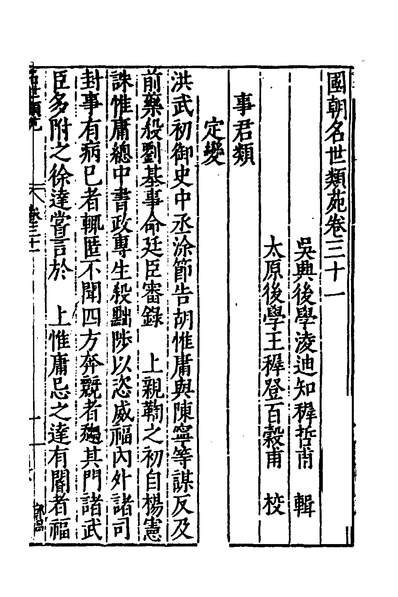 國朝名世類苑卷三十一
吳興後學淩迪知穉哲甫 輯
太原後學王穉登百穀甫 校
事君類
定變
洪武初御史中丞涂節告胡惟庸與陳寧等謀反及
前藥殺劉基事命廷臣審錄 上親鞫之初自楊憲
誅惟庸總中書政專生殺黜陟以恣威福內外諸司
封事有病已者輒匿不聞四方奔競者趨其門諸武
臣多附之徐達嘗言於 上惟庸忌之達有閽者福
名世類苑 卷三十一 一